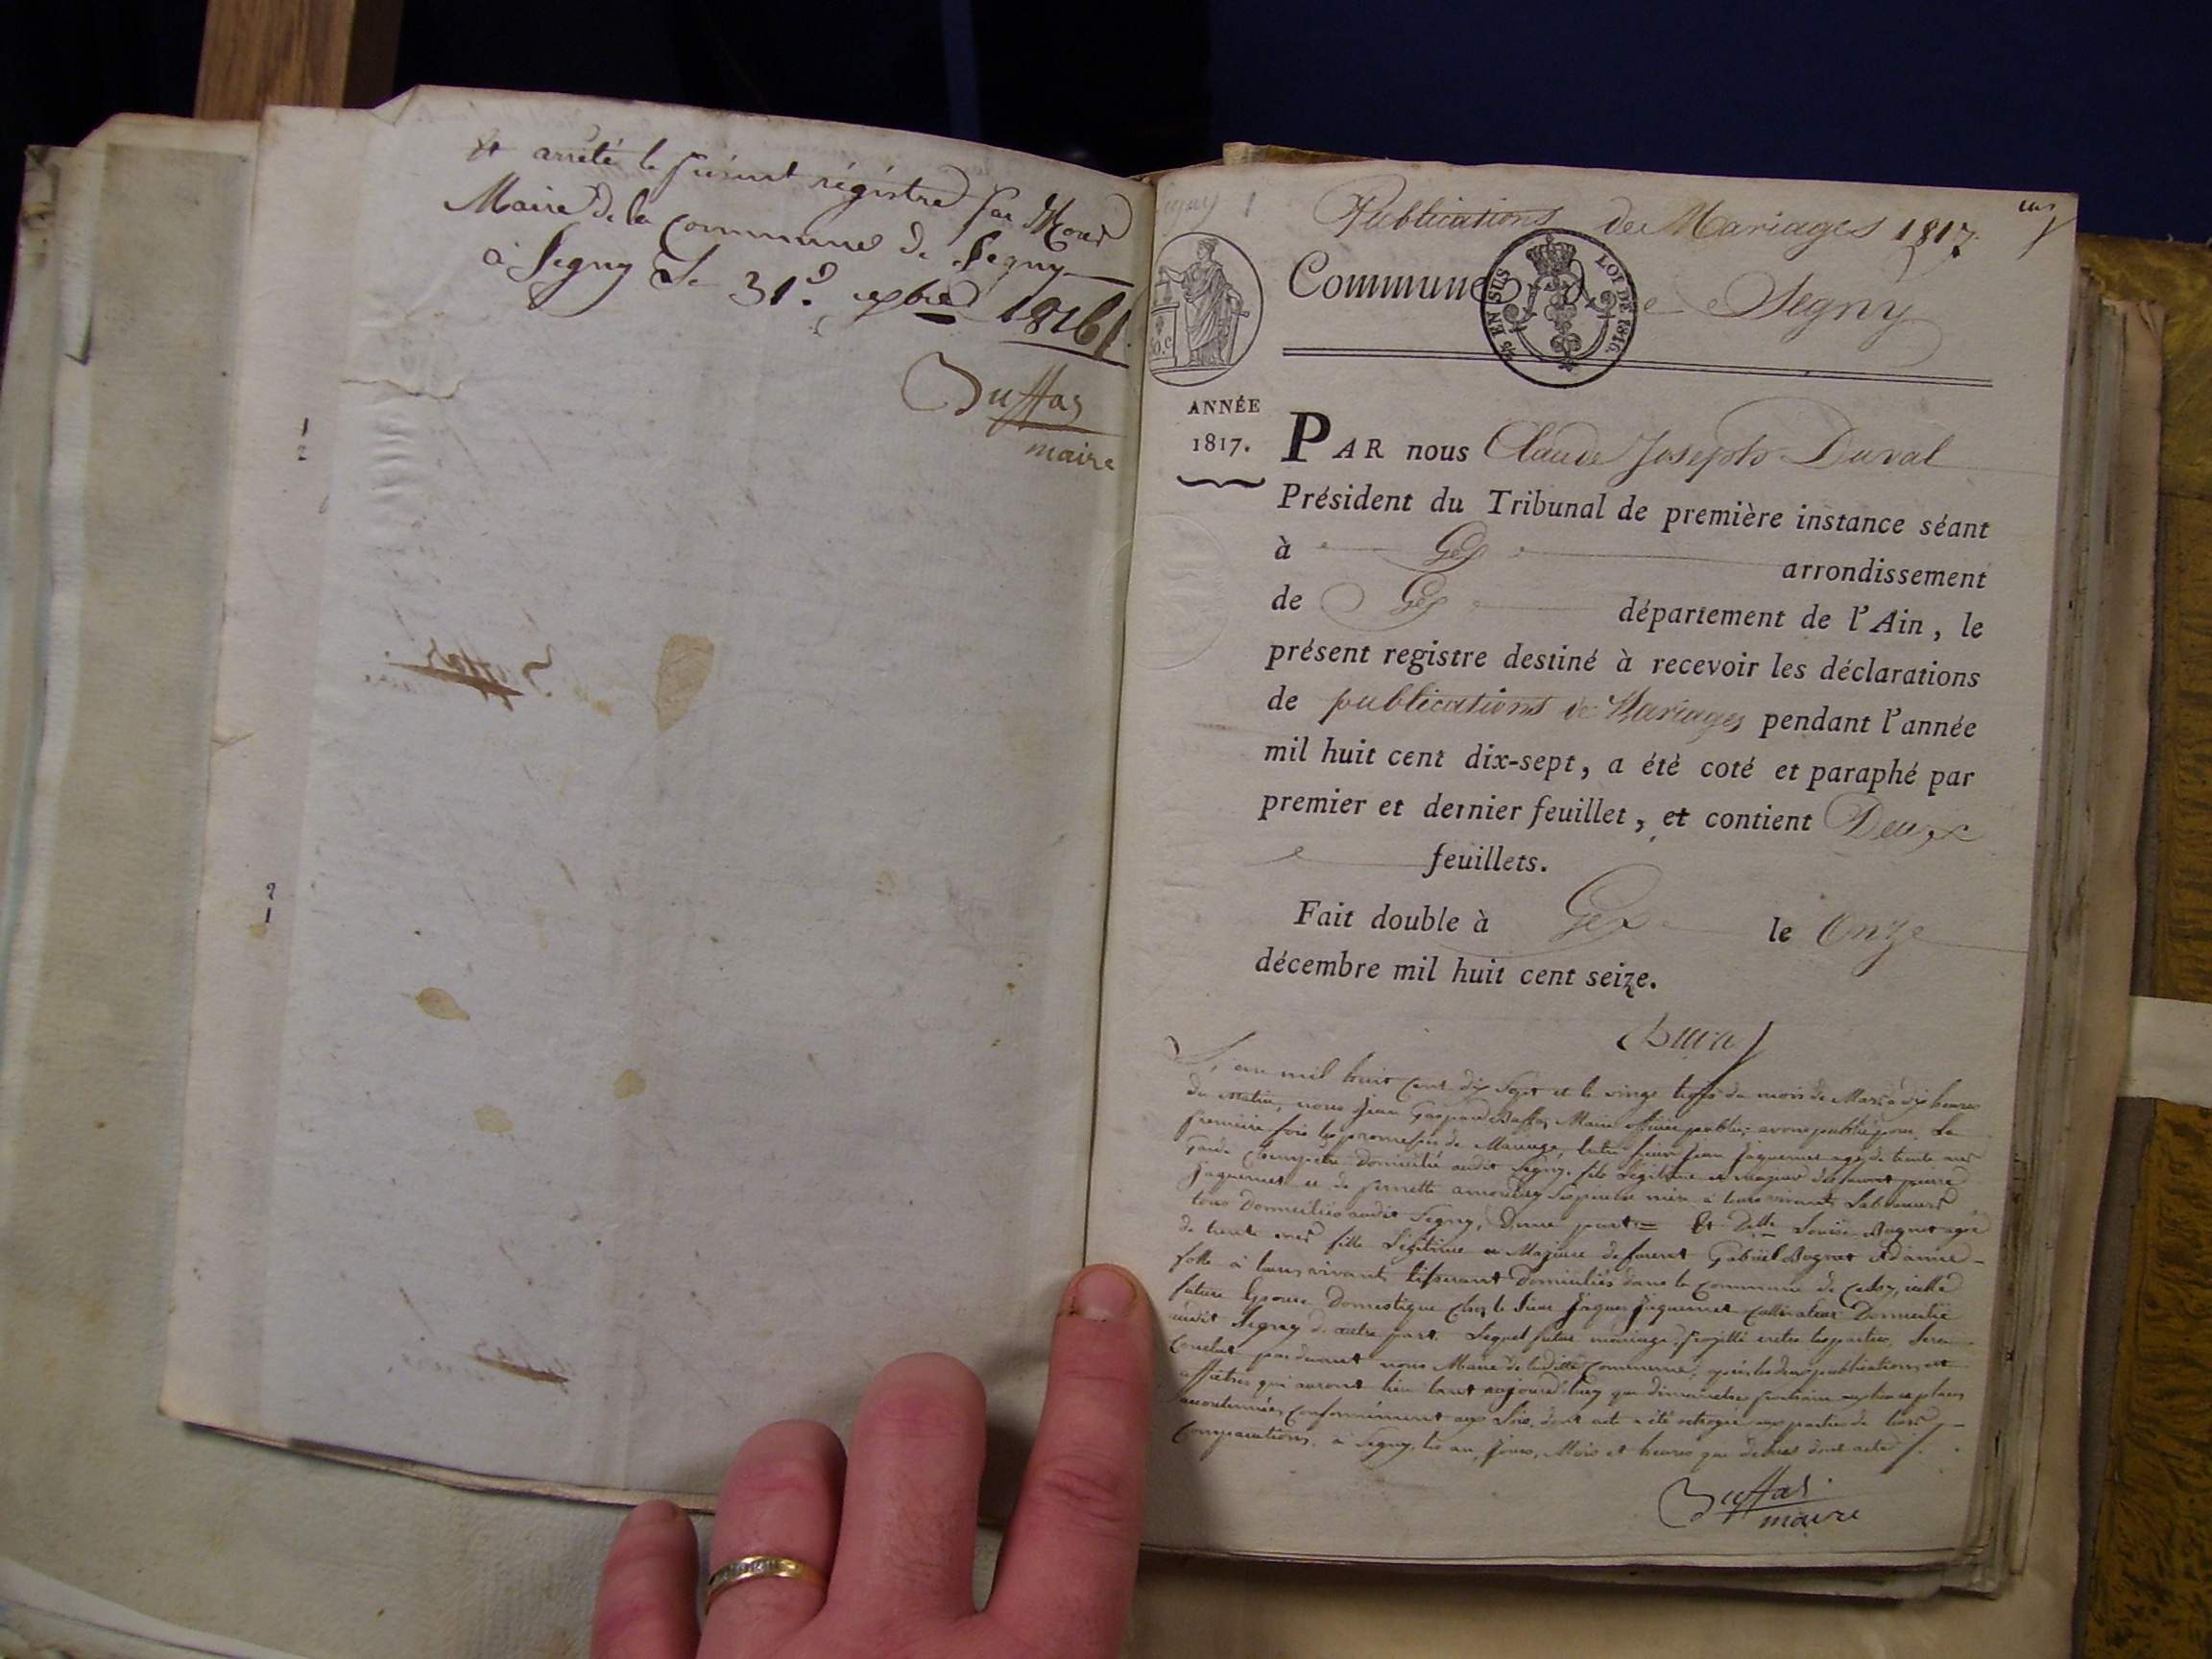 et arrêté le présent régistre par Nous
Maire de la Commune de Segny
à Segny Le 31.e xbre 1816
Buffaz
maire
1
2
2
1
Segny 1
Publications de Mariages 1817.
un
Commune de Segny
4/5 EN SUS LOI DE 1816.
50.c
ANNÉE
1817.
PAR nous Claude Joseph Duval
Président du Tribunal de première instance séant
à Gex arrondissement
de Gex département de l'Ain, le
présent registre destiné à recevoir les déclarations
de publications de Mariages pendant l'année
mil huit cent dix-sept, a été coté et paraphé par
premier et dernier feuillet, et contient Deux
feuillets.
Fait double à Gex le Onze
décembre mil huit cent seize.
Duval
L'an mil huit cent dix Sept et le vingt trois du mois de Mars à dix heures
du matin, nous Jean Gaspard Buffaz Maire officier public, avons publié pour La
premiere fois les promesses de Mariage, Entre Sieur Jean Jaquemet agé de trente ans
Garde Champetre domicilié audit Segny, fils Légitime et majeur des furent pierre
Jaquemet et de pernette ses pere et mere à leurs vivants Laboureurs
tous Domiciliés audit Segny, D'une part = Et Delle Louise Bognet agée
de trente ans fille Légitime et Majeure de furent Gabriel Bognet et d'anne
folle à leurs vivants tisserant Domiciliés dans la Commune de
future Epouse Domestique chez le Sieur Jaques Jaquemet Cultivateur Domicilié
audit Segny d'autre part. Lequel futur mariage projetté entre les parties, Sera
Conclut par devant nous Maire de laditte Commune, après les deux publications et
affiches qui auront lieu tant aujourd'huy que dimanche prochain aux lieux et places
accoutumées Conformément aux Lois, dont acte a été octroyé aux parties de leurs
Comparutions, à Segny, les an, Jours, Mois et heures que dessus dont acte
Buffaz
maire